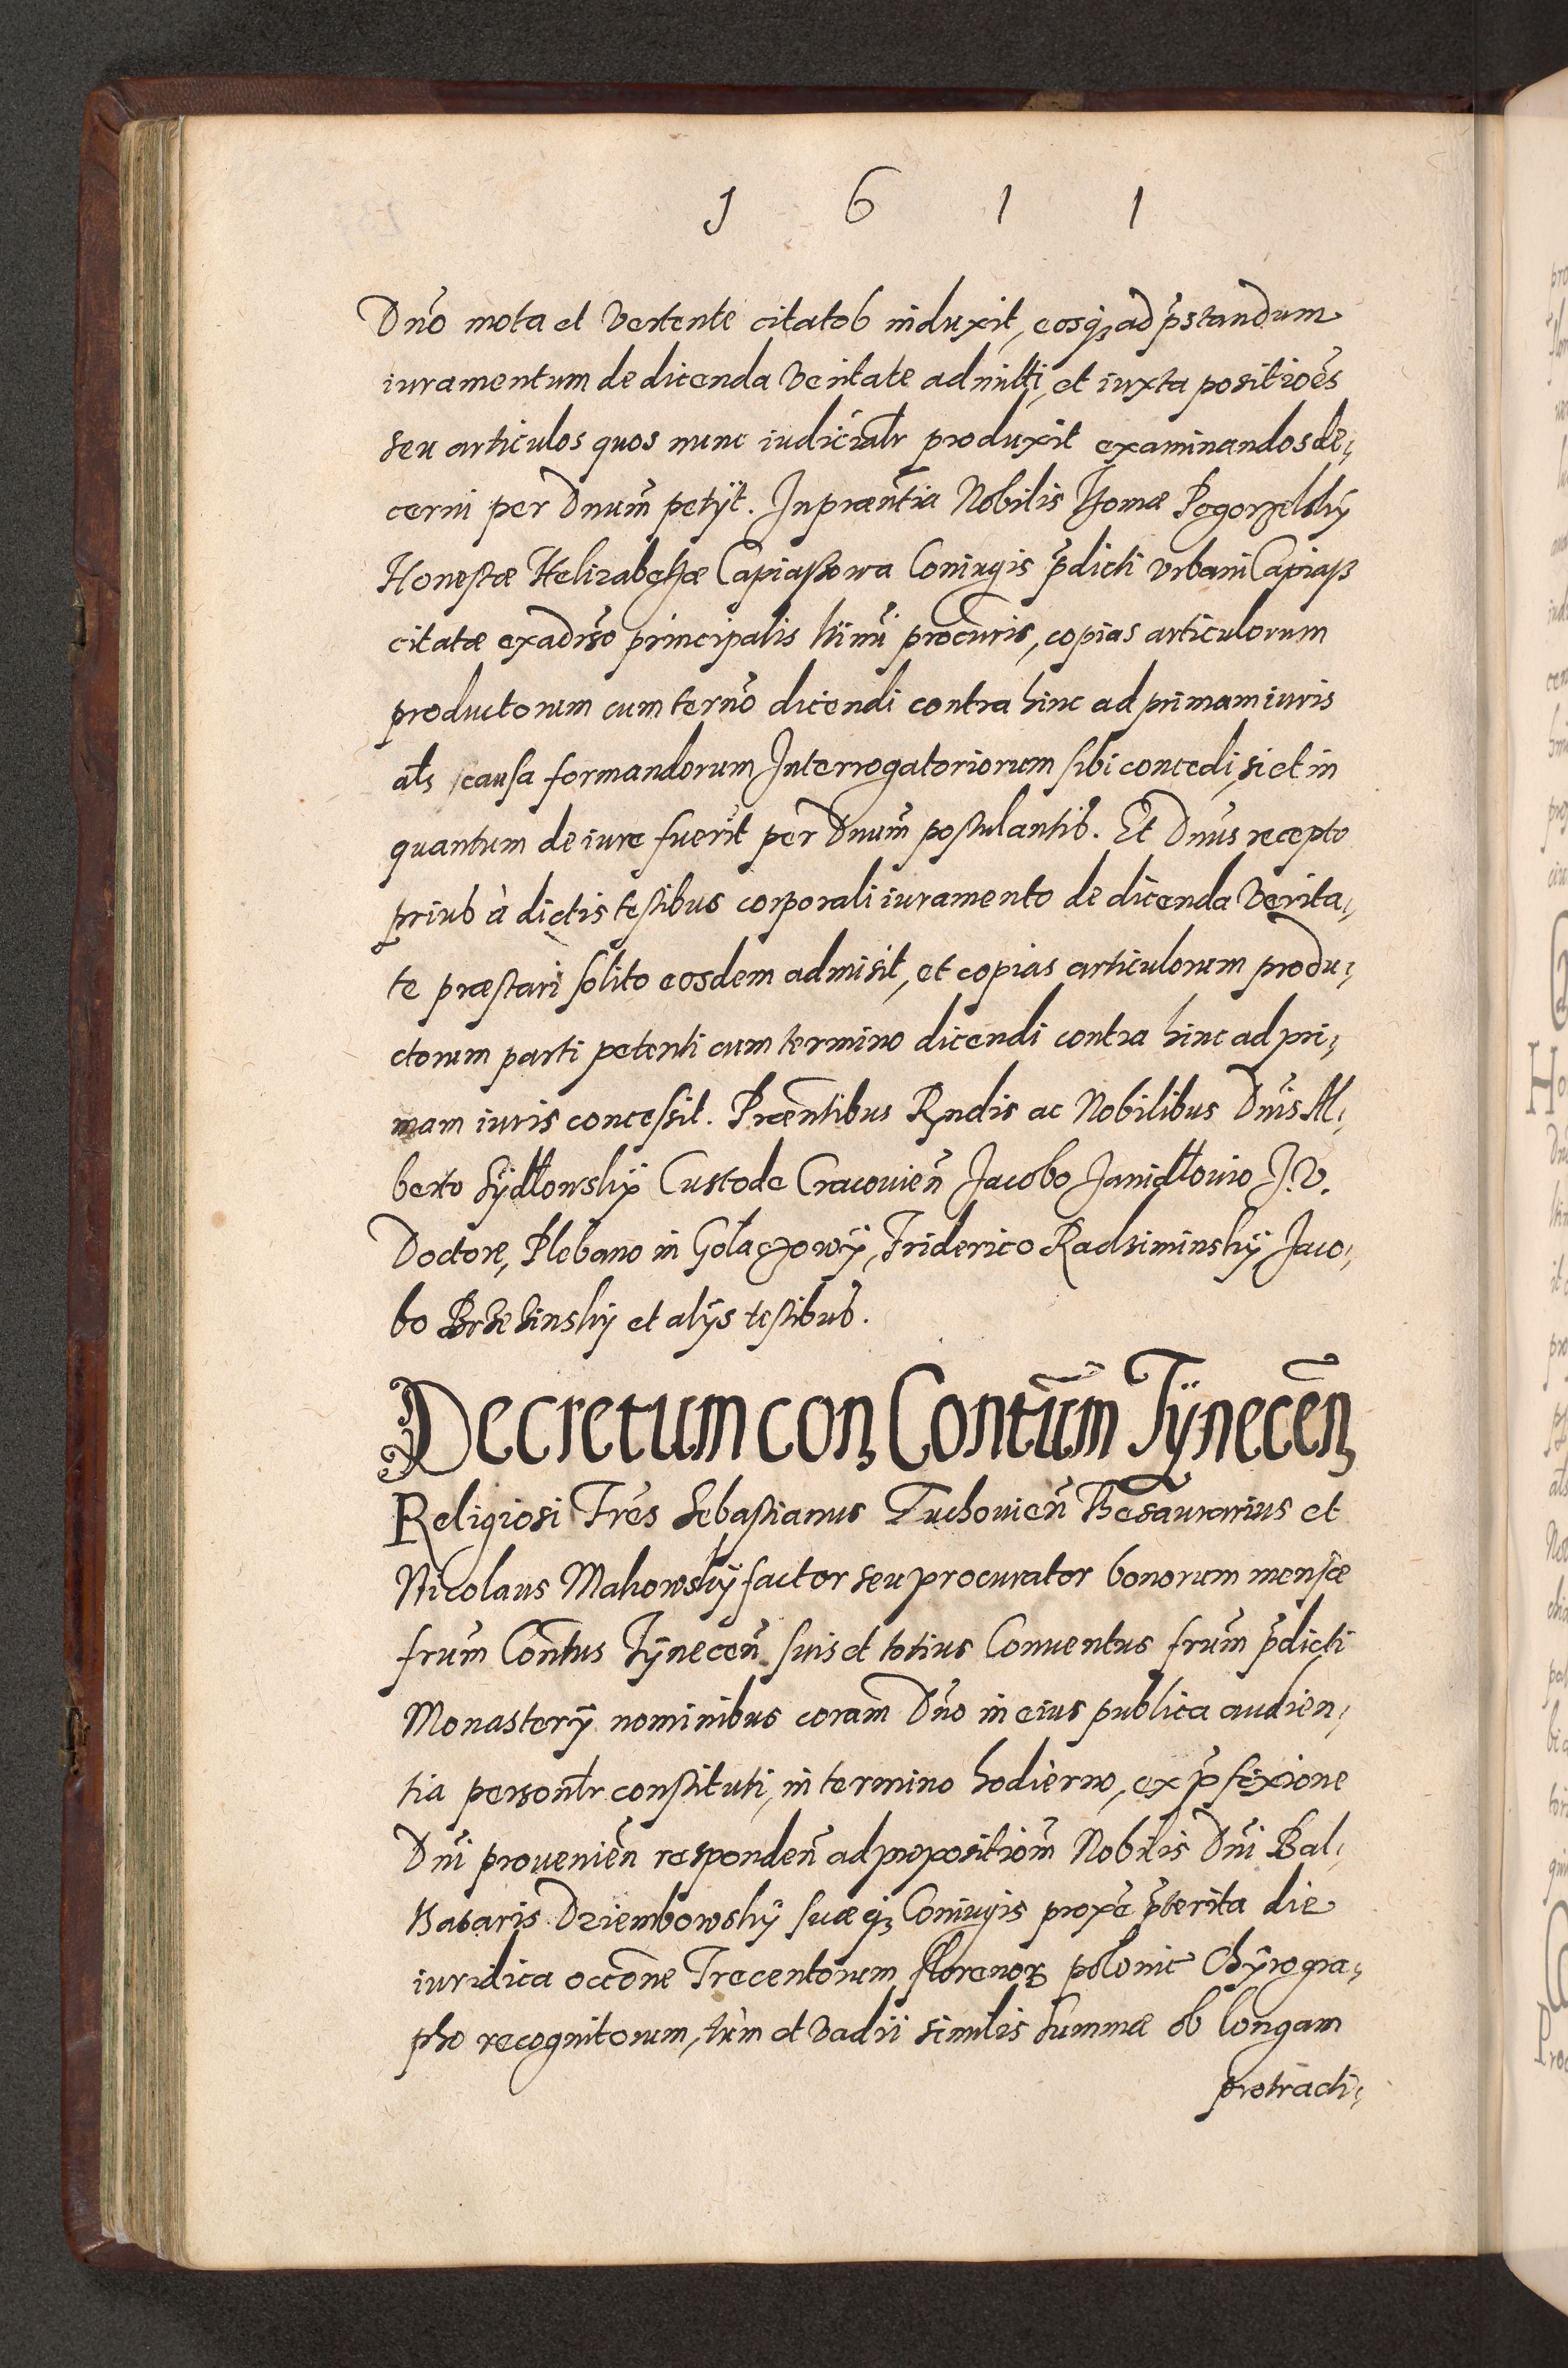 1 6 1 1
Dño mota et vertente citatos induxit, eosq; ad p̃standum
iuramentum de dicenda veritate admitti, et iuxta positioẽs
seu articulos quos nunc iudicialr produxit examinandos de,
cerni per Dnum̃ petÿt. In præntia Nobilis Thomæ Pogorzelskÿ
Honestæ Helizabethæ Capiaszowa Coniugis p̃dicti Vrbani Capiasz
citatæ ex adũso principalis procuris, copias articulorum
productorum cum terno dicendi contra hinc ad primam iuris
als causa formandorum Interrogatoriorum sibi concedi, si et in
quantum de iure fuerit per Dnum̃ postulantis. Et Dñus recepto
prius à dictis testibus corporali iuramento de dicenda verita,
te præstari solito eosdem admisit, et copias articulorum produ,
ctorum parti petenti cum termino dicendi contra hinc ad pri,
mam iuris concessit. Præntibus Rndis ac Nobilibus Dnis Al,
berto Sÿdłowskÿ Custode Cracouieñ Jacobo Janidłouio J. V.
Doctore, Plebano in Gołaczowÿ, Friderico Radziminskÿ Jaco,
bo Brzezinskÿ et alÿs testibus.
Decretum con, Contum̃ Tÿnecen̄
Religiosi Frẽs Sebastianus Tuchouieñ Thesaurarius et
Nicolaus Makowskÿ factor seu procurator bonorum mensæ
frum̃ Contus Tÿneceñ suis et totius Conuentus frum̃ p̃dicti
Monasterÿ nominibus coram Dño in eius publica audien,
tia personlr constituti, in termino hodierno, ex p̃fixione
Dñi prouenieñ respondeñ ad propositiom̃ Nobilis Dñi Bal,
thasaris Dziembowskÿ suæq; Coniugis proxe p̃terita die
iuridica occõne Trecentorum florenoꝝ polonic Chÿrogra,
pho recognitorum, tùm et vadii similis summæ ob longam
protracti,